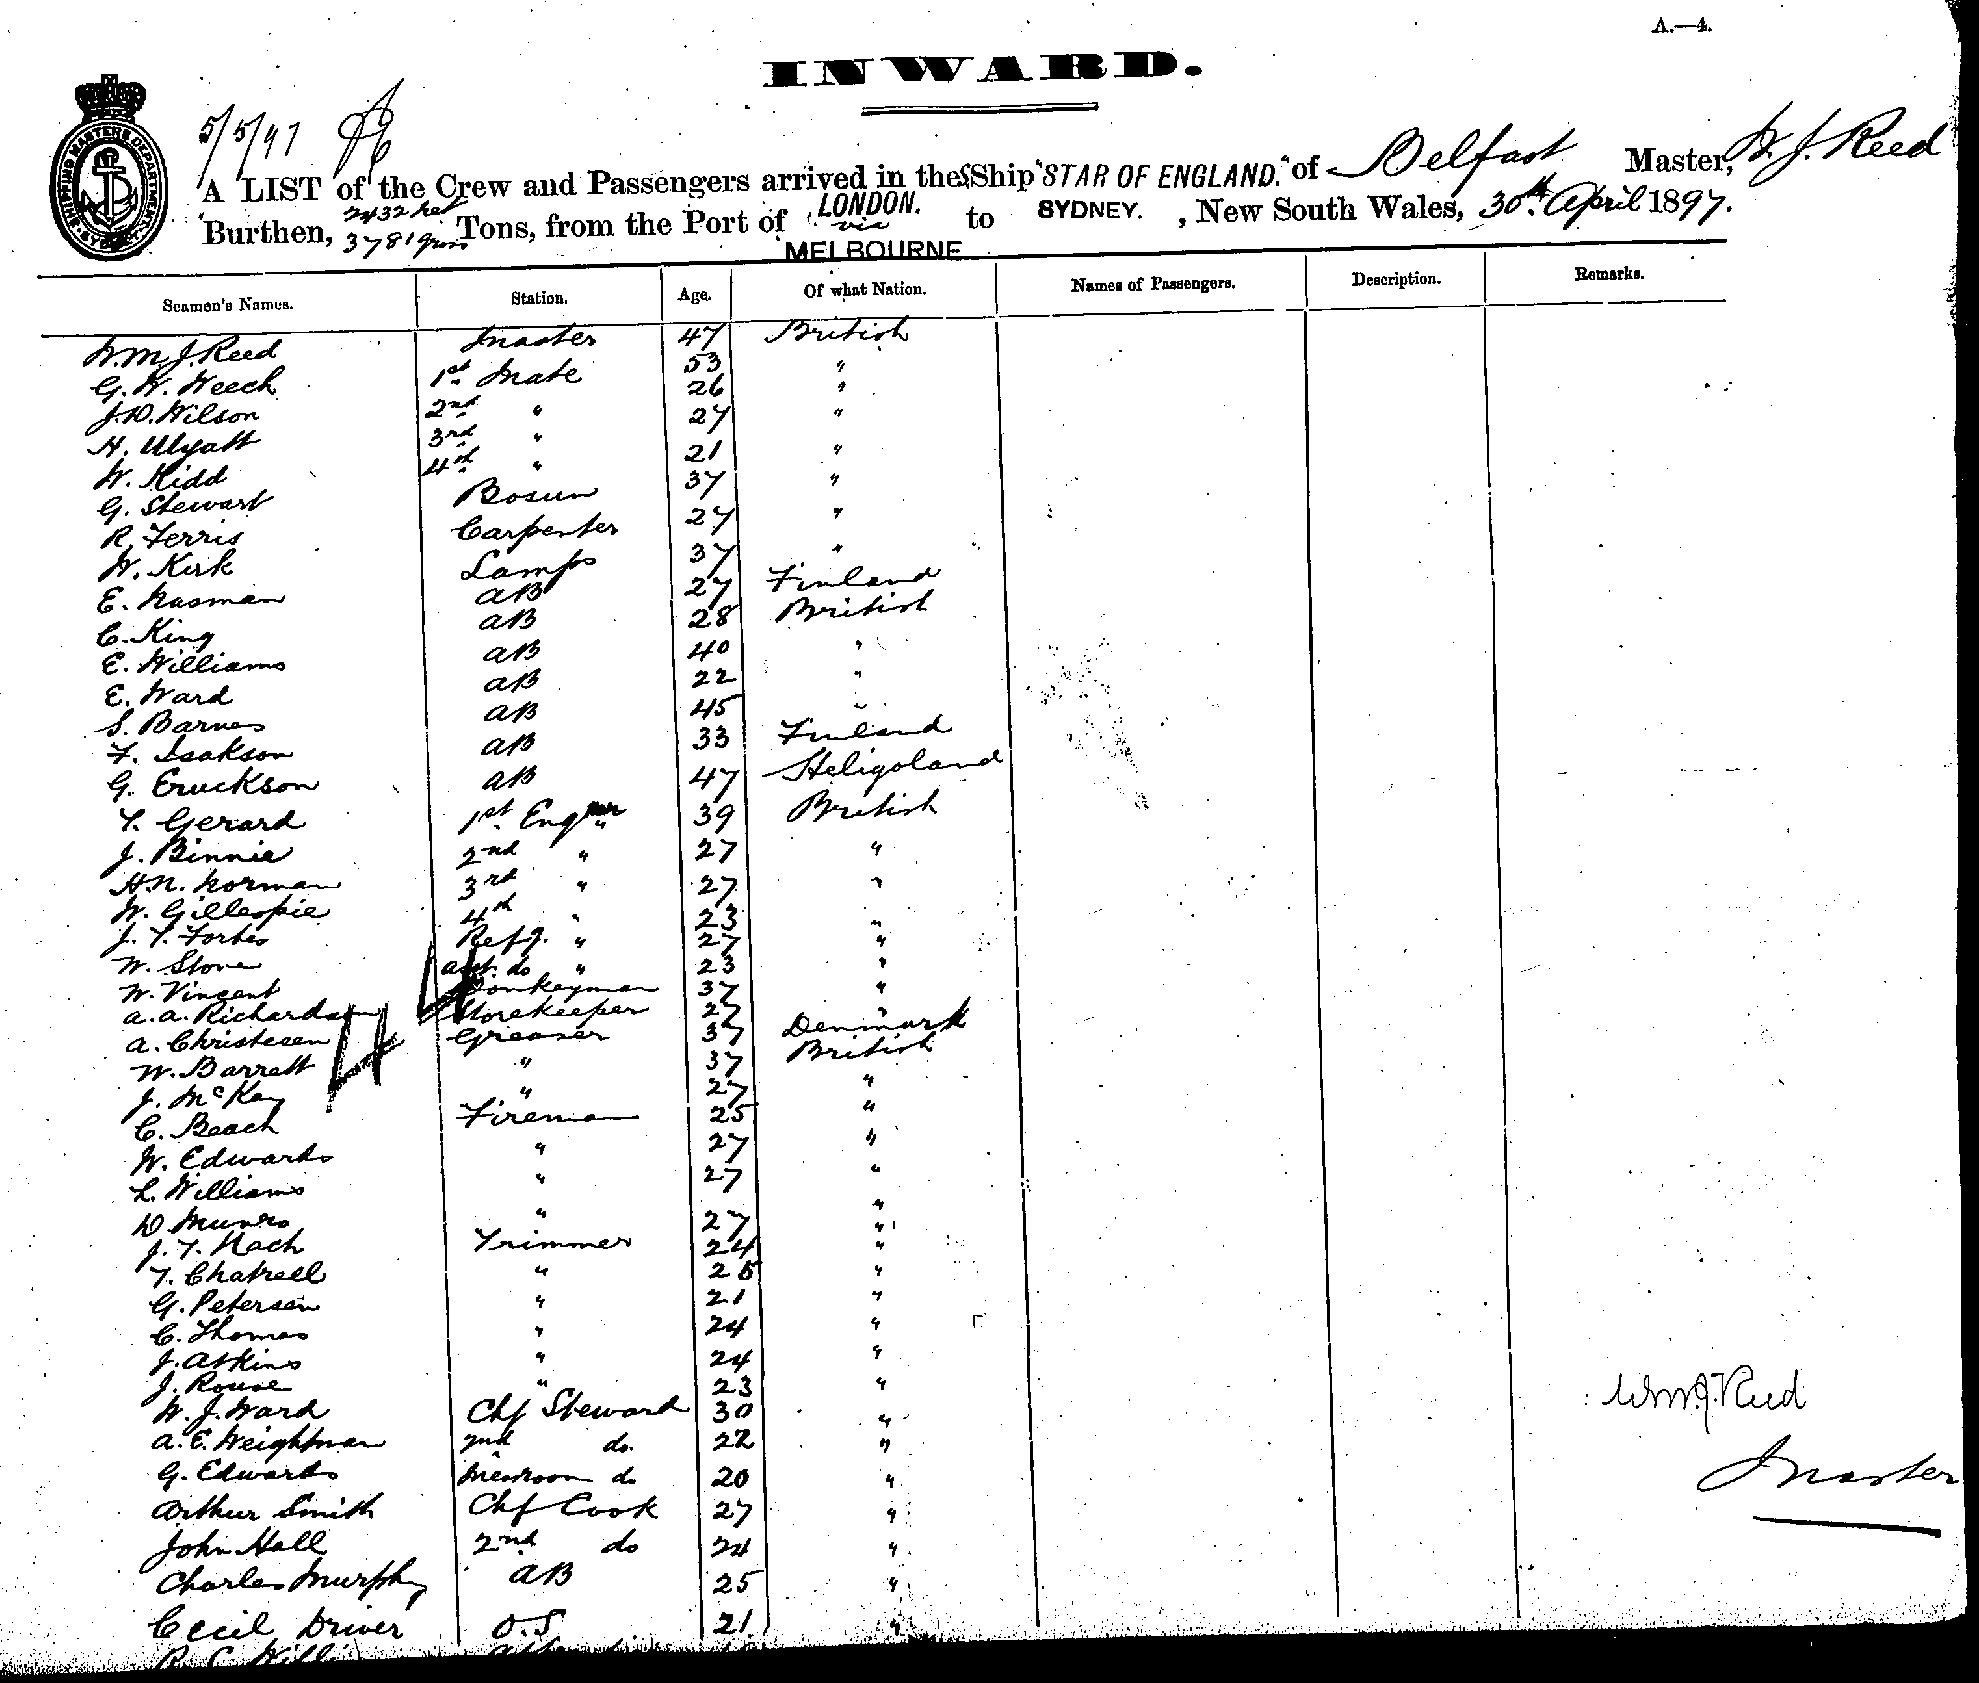 A.—4.
INWARD.
SHIPPING MASTERS DEPARTMENT SYDNEY
5/5/97
A LIST of the Crew and Passengers arrived in the SShip "STAR OF ENGLAND." of Belfast Master, W. J. Reed
Burthen, 2432 net 3781 gross Tons, from the Port of LONDON. via MELBOURNE to SYDNEY. , New South Wales, 30th April 1897.
Seamen's Names. Station. Age. Of what Nation. Names of Passengers. Description. Remarks.
W. M. J. Reed Master 47 British
G. W. Weech 1st Mate 53 "
J. D. Wilson 2nd " 26 "
H. Wyatt 3rd " 27 "
W. Kidd 4th " 21 "
G. Stewart Bosun 37 "
R. Ferris Carpenter 27 "
W. Kirk Lamps 37 "
E. Nasman AB 27 Finland
C. King AB 28 British
E. Williams AB 40 "
E. Ward AB 22 "
S. Barnes AB 45 "
F. Isakson AB 33 Finland
G. Eruckson AB 47 Heligoland
T. Gerard 1st Engr 39 British
J. Binnie 2nd " 27 "
H. N. Norman 3rd " 27 "
W. Gillespie 4th " 23 "
J. T. Forbes Refg. " 27 "
W. Stone asst. do " 23 "
W. Vincent Donkeyman 37 "
A. A. Richardson Storekeeper 27 "
A. Christesen Greaser 37 Denmark
W. Barrett " 37 British
J. McKay " 27 "
C. Beach Fireman 25 "
W. Edwards " 27 "
L. Williams " 27 "
D. Munro " 27 "
J. T. Nach Trimmer 24 "
T. Chatrell " 25 "
G. Petersen " 21 "
C. Thomas " 24 "
J. Atkins " 24 "
J. Rouse " 23 "
W. J. Ward Chf Steward 30 "
A. E. Weightman 2nd do. 22 "
G. Edwards Messroom do 20 "
Arthur Smith Chf Cook 27 "
John Hall 2nd do 24 "
Charles Murphy AB 25 "
Cecil Driver O.S 21 "
Wm J. Reed
Master